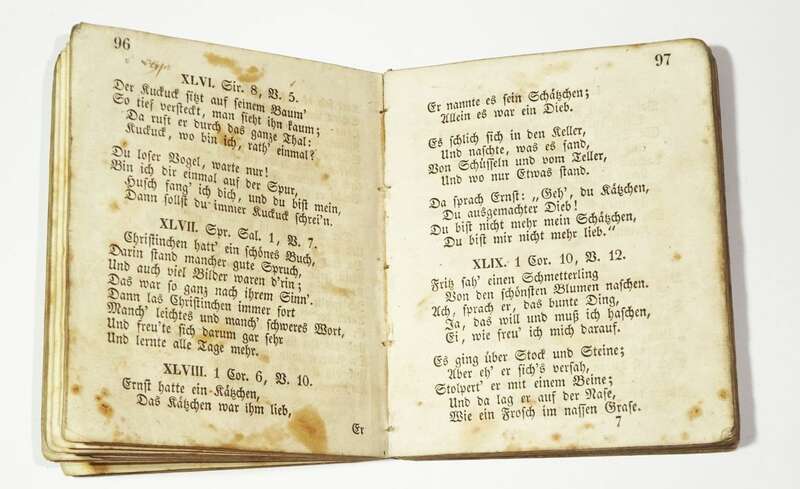 96
XLVI. Sir. 8, V. 5.
Der Kuckuck sitzt auf seinem Baum'
So tief versteckt, man sieht ihn kaum;
Da ruft er durch das ganze Thal:
Kuckuck, wo bin ich, rath' einmal?
Du loser Vogel, warte nur!
Bin ich dir einmal auf der Spur,
Husch fang' ich dich, und du bist mein,
Dann sollst du immer Kuckuck schrei'n.
XLVII. Spr. Sal. 1, V. 7.
Christinchen hatt' ein schönes Buch,
Darin stand mancher gute Spruch,
Und auch viel Bilder waren d'rin;
Das war so ganz nach ihrem Sinn'.
Dann las Christinchen immer fort
Manch' leichtes und manch' schweres Wort,
Und freu'te sich darum gar sehr
Und lernte alle Tage mehr.
XLVIII. 1 Cor. 6, V. 10.
Ernst hatte ein Kätzchen,
Das Kätzchen war ihm lieb,
Er
97
Er nannte es sein Schätzchen;
Allein es war ein Dieb.
Es schlich sich in den Keller,
Und naschte, was es fand,
Von Schüsseln und vom Teller,
Und wo nur Etwas stand.
Da sprach Ernst: „Geh', du Kätzchen,
Du ausgemachter Dieb!
Du bist nicht mehr mein Schätzchen,
Du bist mir nicht mehr lieb."
XLIX. 1 Cor. 10, V. 12.
Fritz sah' einen Schmetterling
Von den schönsten Blumen naschen.
Ach, sprach er, das bunte Ding,
Ja, das will und muß ich haschen,
Ei, wie freu' ich mich darauf.
Es ging über Stock und Steine;
Aber eh' er sich's versah,
Stolpert' er mit einem Beine;
Und da lag er auf der Nase,
Wie ein Frosch im nassen Grase.
7